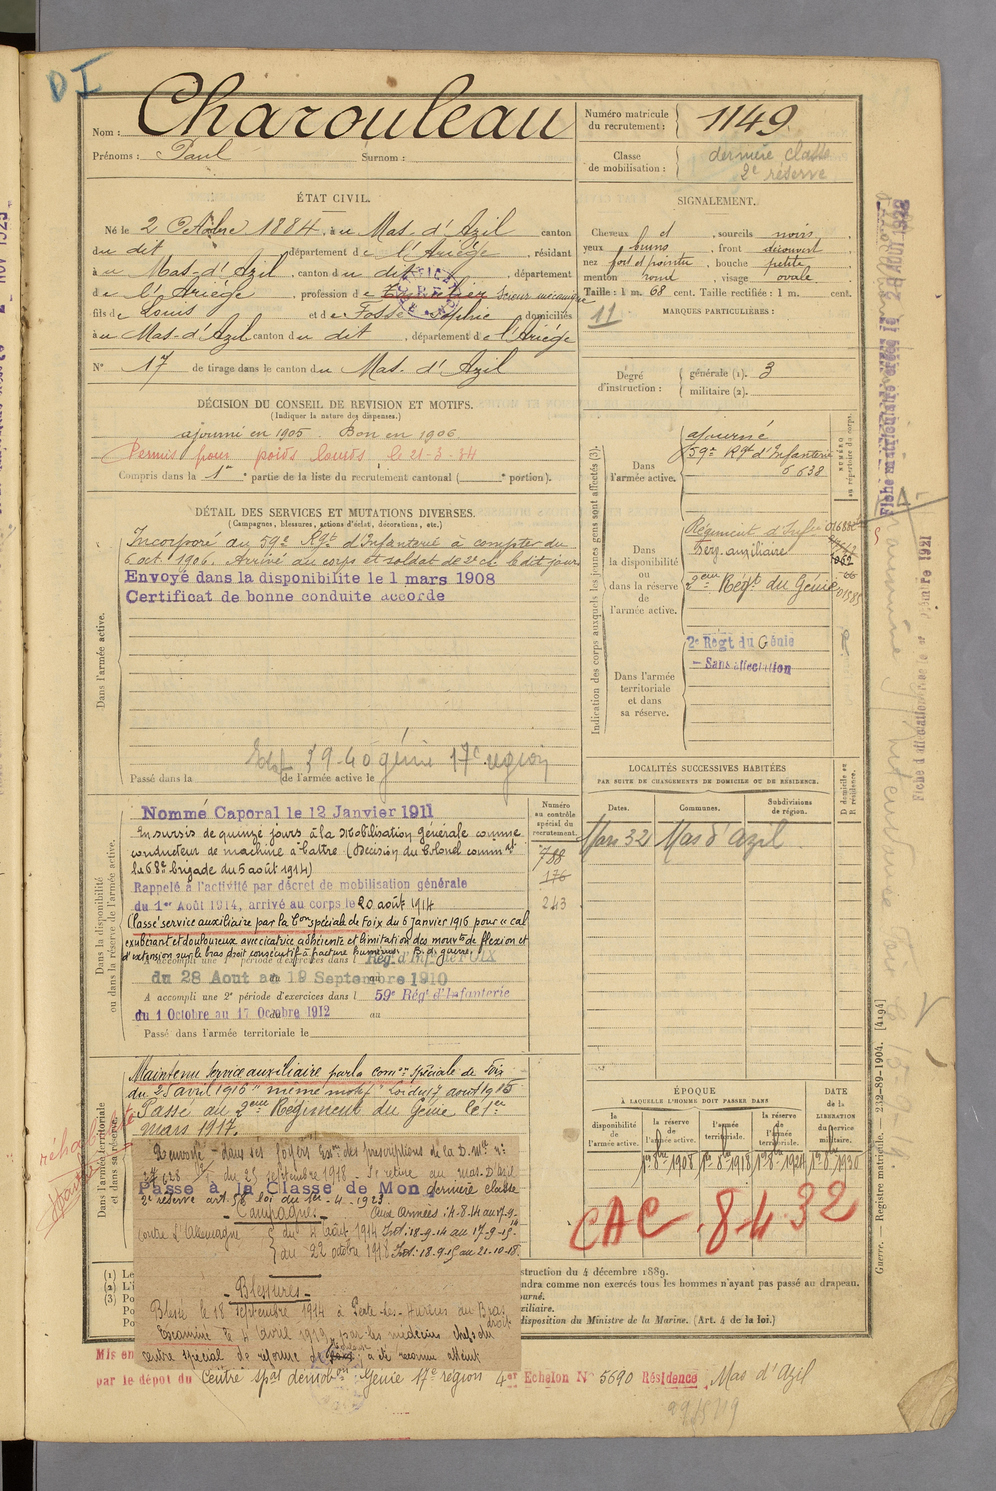 D I
Nom : Charouleau
Prénoms : Paul Surnom :
Numéro matricule du recrutement : 1149
Classe de mobilisation : dernière classe 2e réserve
ÉTAT CIVIL.
Né le 2 Octobre 1884, à u Mas-d'Azil canton
du dit département de l'Ariège, résidant
à u Mas-d'Azil, canton du dit, département
de l'Ariège, profession de Scieur mécanique
fils de Louis et de Fosse Sophie domiciliés
à u Mas-d'Azil canton du dit, département de l'Ariège
N° 17 de tirage dans le canton du Mas-d'Azil
SIGNALEMENT.
Cheveux et sourcils noirs
yeux bruns, front découvert
nez fort et pointu, bouche petite
menton rond, visage ovale
Taille : 1 m. 68 cent. Taille rectifiée : 1 m. cent.
11 MARQUES PARTICULIÈRES :
Degré d'instruction : générale (1). 3
militaire (2).
DÉCISION DU CONSEIL DE REVISION ET MOTIFS.
(Indiquer la nature des dispenses.)
ajourné en 1905. Bon en 1906
Permis pour poids lourds le 21-3-34
Compris dans la 1re partie de la liste du recrutement cantonal ( portion).
DÉTAIL DES SERVICES ET MUTATIONS DIVERSES.
(Campagnes, blessures, actions d'éclat, décorations, etc.)
Dans l'armée active.
Incorporé au 59e Rgt d'Infanterie à compter du
6 oct. 1906. Arrivé au corps et soldat de 2e cl. le dit jour
Envoyé dans la disponibilite le 1 mars 1908
Certificat de bonne conduite accorde
39-40 génie 17e région
Passé dans la de l'armée active le
Indication des corps auxquels les jeunes gens sont affectés (3).
Dans l'armée active.
ajourné
59e Rgt d'Infanterie
6638
NUMÉRO au répertoire du corps.
Dans la disponibilité ou dans la réserve de l'armée active.
Régiment d'Infie
Serv. auxiliaire
2eme Régt du Génie
Dans l'armée territoriale et dans sa réserve.
2e Régt du Génie
- Sans affectation
LOCALITÉS SUCCESSIVES HABITÉES
PAR SUITE DE CHANGEMENTS DE DOMICILE OU DE RÉSIDENCE.
Dates. Communes. Subdivisions de région. D domicile ou R résidence.
Mars 32 Mas d'Azil
Dans la disponibilité ou dans la réserve de l'armée active.
Numéro au contrôle spécial du recrutement.
788
176
243
Nommé Caporal le 12 Janvier 1911
En sursis de quinze jours à la Mobilisation Générale comme
conducteur de machine à battre (Décision du Colonel commt
la 68e brigade du 5 août 1914)
Rappelé à l'activité par décret de mobilisation générale
du 1er Août 1914, arrivé au corps le 20 août 1914
Classé service auxiliaire par la Con spéciale de Foix du 6 janvier 1916 pour "cal
exubérant et douloureux avec cicatrice adhérente et limitation des mouvts de flexion et
d'extension sur le bras droit consécutif à fracture humérus. B. de guerre.
A accompli une 1re période d'exercices dans l Rég. d'Inf. de FOIX
du 28 Aout au 19 Septembre 1910
A accompli une 2e période d'exercices dans l 59e Régt d'Infanterie
du 1 Octobre au 17 Octobre 1912 au
Passé dans l'armée territoriale le
Dans l'armée territoriale et dans sa réserve.
Maintenu Service auxiliaire par la Comon Spéciale de Foix
du 25 avril 1916 "même motif" Loi du 17 août 1915
Passé au 2eme Régiment du Génie le 1er
mars 1917.
Renvoyé dans ses foyers des prescriptions de la D. Mlle No
du 25 septembre 1918 - Se retire au Mas-D'Azil
Passé à la Classe de Mon dernière classe
2e réserve art. 58 loi du 1er-4-1923.
- Campagnes -
Aux Armées : 4-8-14 au 17-9-14
Contre l'Allemagne du 4 août 1914 Int : 18-9-14 au 17-9-15
au 22 octobre 1918 Int : 18-9-15 au 21-10-18
- Blessures -
Blessé le 18 septembre 1914 à Perte-les-Hurlus au Bras droit
Examiné le 4 avril 1919 par les médecins chefs du
centre spécial de réforme de a été reconnu atteint
ÉPOQUE
À LAQUELLE L'HOMME DOIT PASSER DANS
la disponibilité de l'armée active. la réserve de l'armée active. l'armée territoriale. la réserve de l'armée territoriale.
DATE de la LIBÉRATION du service militaire.
1er 8bre 1908 1er 8bre 1918 1er 8bre 1924 1er 8bre 1930
CAC . 8-4-32
(1) Le
(2) L'i
(3) Po
struction du 4 décembre 1889.
ndra comme non exercés tous les hommes n'ayant pas passé au drapeau.
ourné.
xiliaire.
disposition du Ministre de la Marine. (Art. 4 de la loi.)
Mis en
par le dépôt du Centre Spal démobon Génie 17e région 4er Echelon N° 5690 Résidence Mas d'Azil
Guerre. — Registre matricule. — 232-89-1904. [4194]